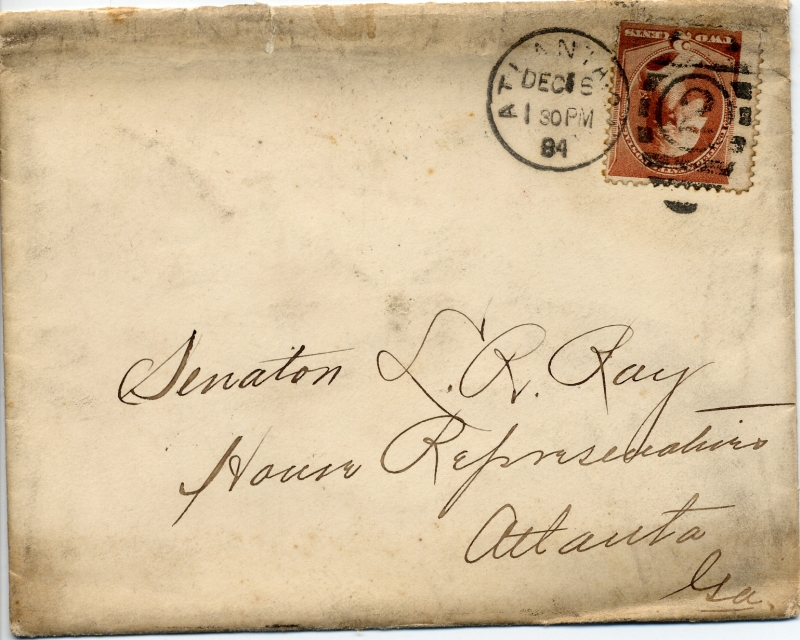 ATLANTA
DEC 16
1 30 PM
84
TWO 2 CENTS
Senator L. R. Ray
House Representatives
Atlanta
Ga